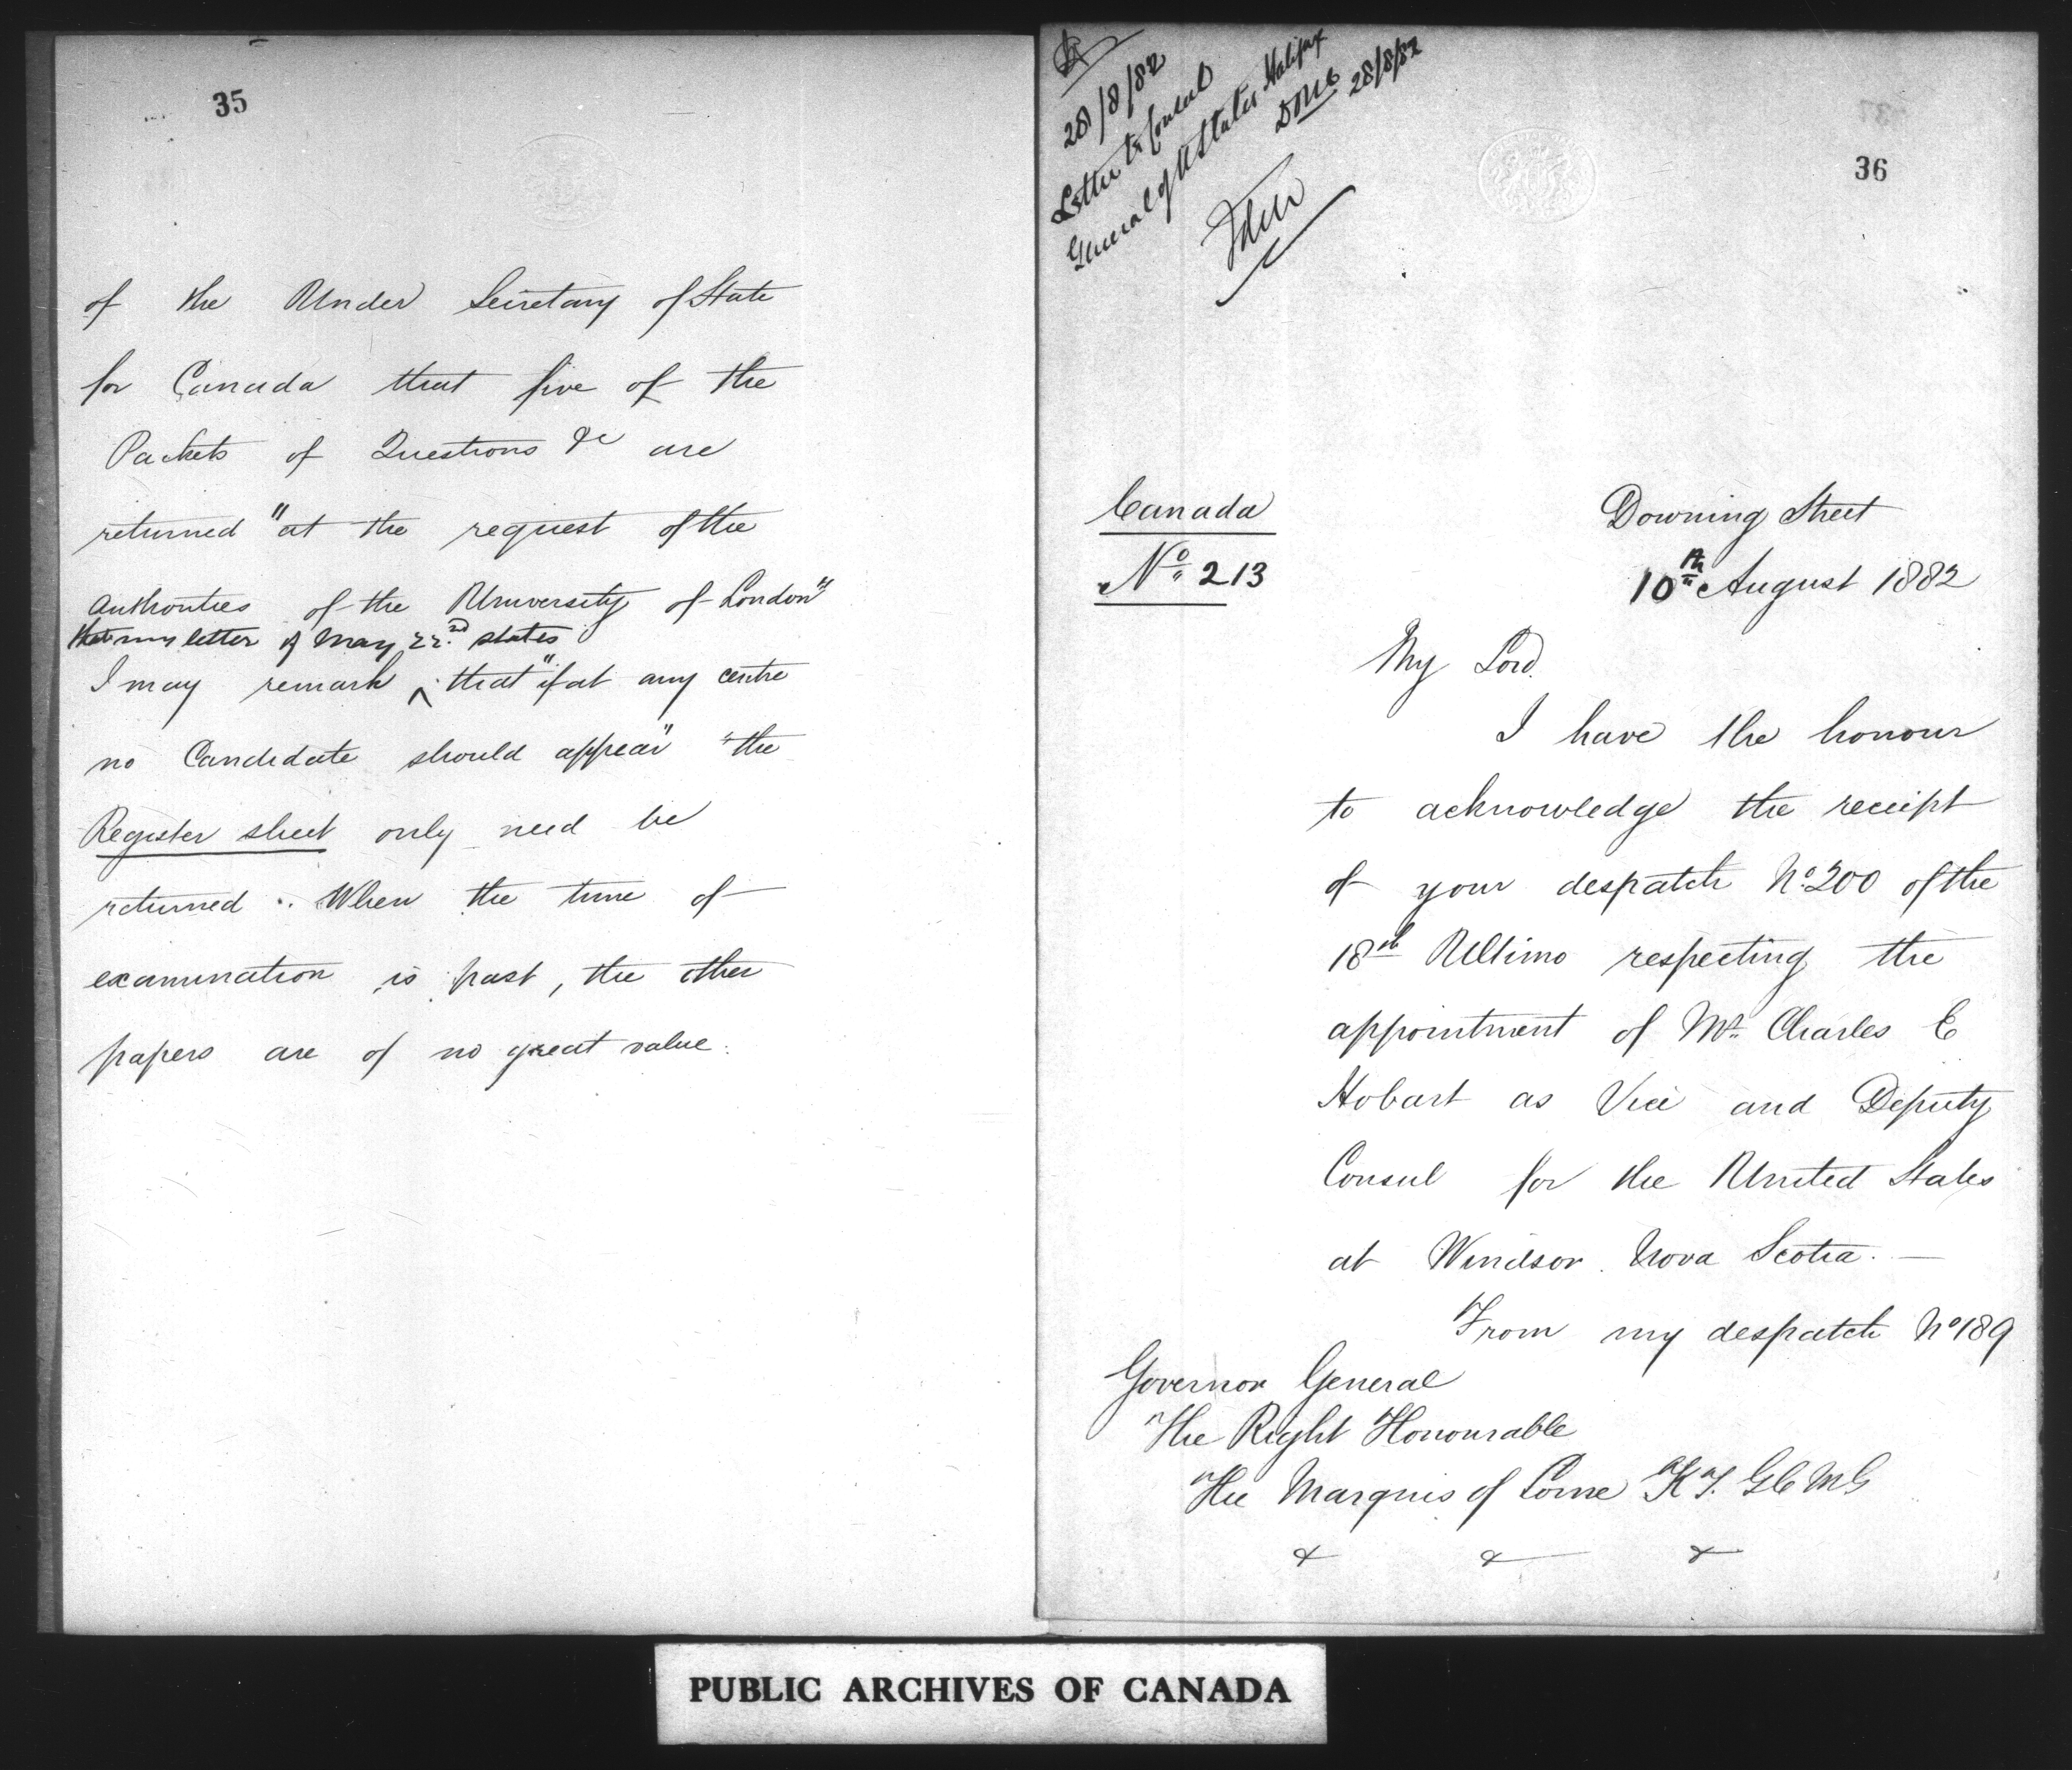 35
of the Under Secretary of State
for Canada that five of the
Packets of Questions &c are
returned "at the request of the
authorities of the University of London"
that my letter of May 22nd states
I may remark ^ that "if at any centre
no Candidate should appear" "the
Register sheet only need be
returned". When the time of
examination is past, the other
papers are of no great value.
28/8/82
Letter to Consul
General of U States Halifax
Done 28/8/82
36
Canada
No. 213
Downing Street
10th August 1882
My Lord.
I have the honour
to acknowledge the receipt
of your despatch No. 200 of the
18th Ultimo respecting the
appointment of Mr. Charles E
Hobart as Vice and Deputy
Consul for the United States
at Windsor. Nova Scotia. —
From my despatch No 189
Governor General
The Right Honourable
The Marquis of Lorne K.T. GCMG
& & &
PUBLIC ARCHIVES OF CANADA